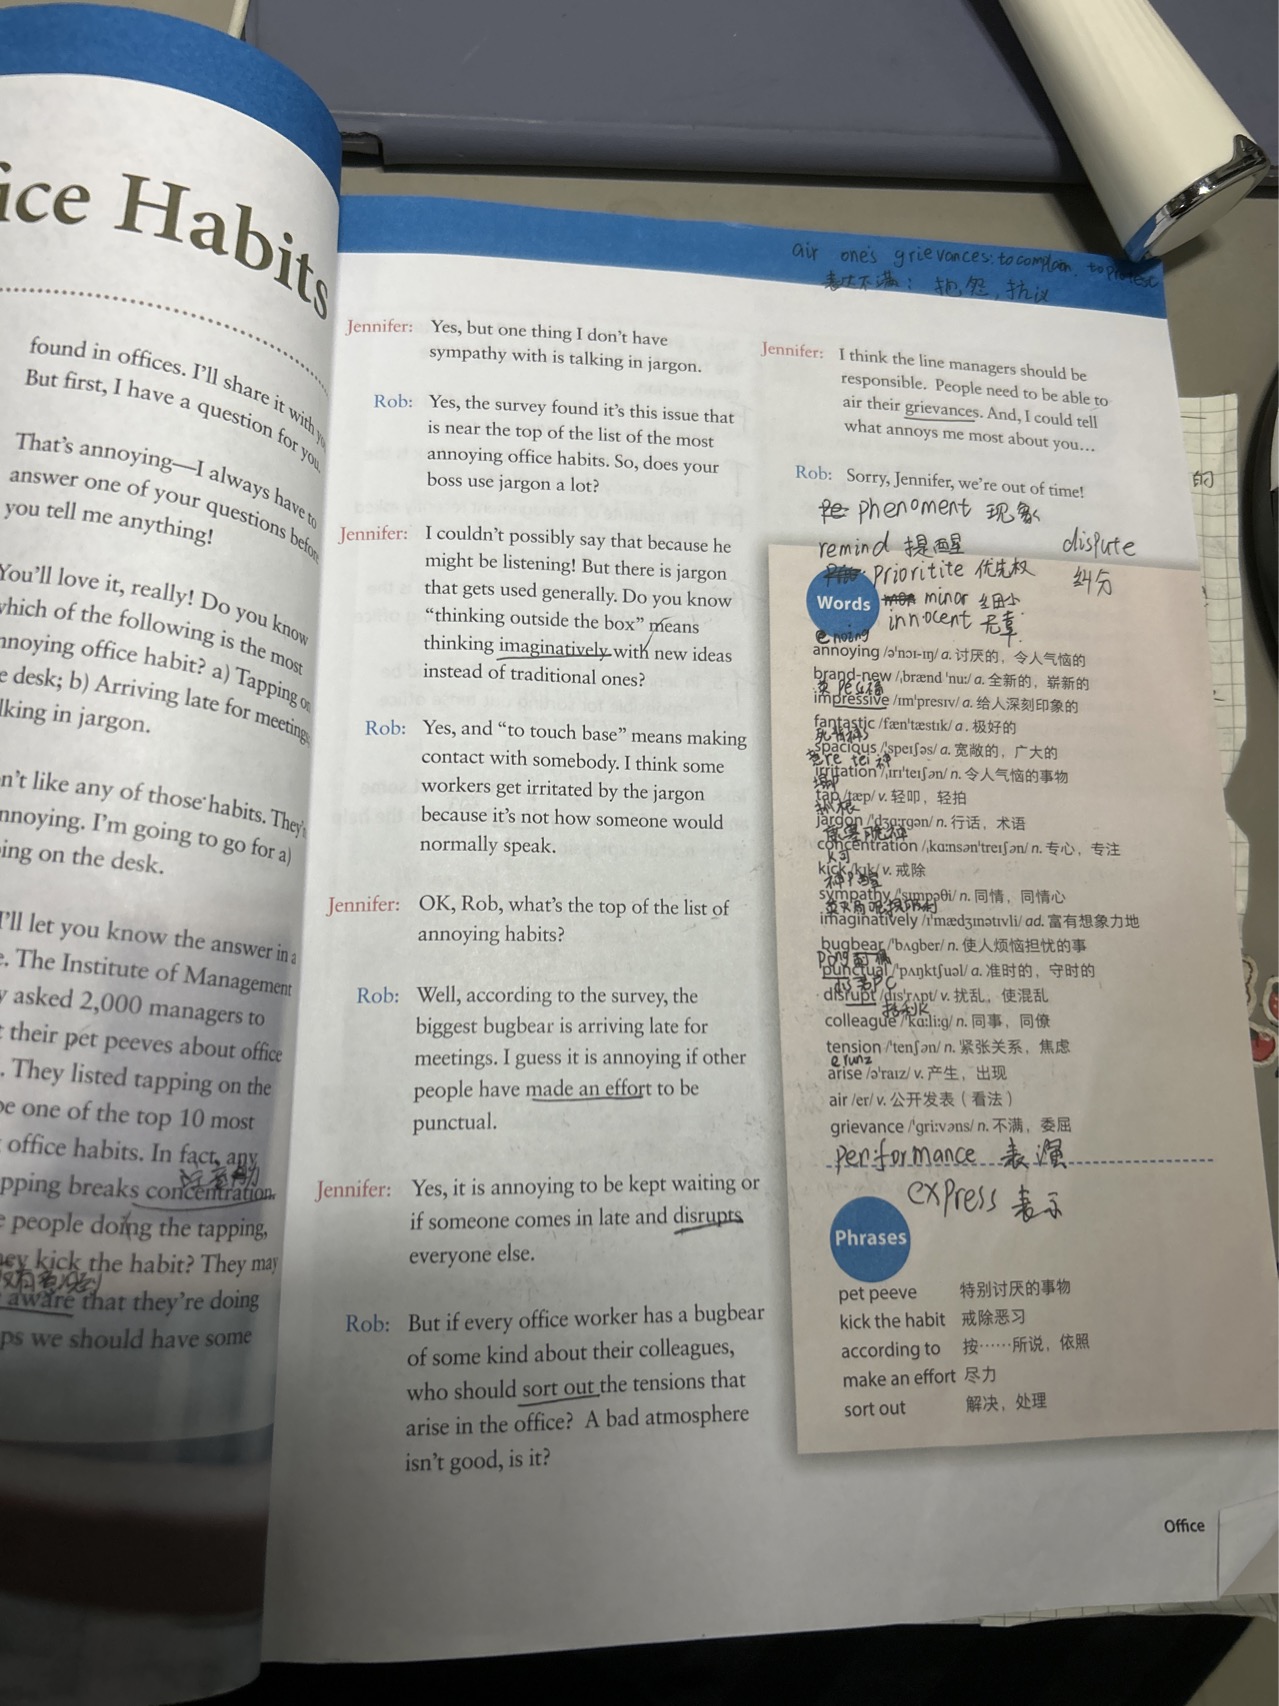 ice Habits
found in offices. I'll share it with you
But first, I have a question for you.
That's annoying—I always have to
answer one of your questions before
you tell me anything!
You'll love it, really! Do you know
which of the following is the most
nnoying office habit? a) Tapping on
e desk; b) Arriving late for meetings
lking in jargon.
n't like any of those habits. They'r
nnoying. I'm going to go for a)
ing on the desk.
I'll let you know the answer in a
e. The Institute of Management
y asked 2,000 managers to
t their pet peeves about office
. They listed tapping on the
be one of the top 10 most
office habits. In fact, any
pping breaks concentration,
e people doing the tapping,
hey kick the habit? They may
aware that they're doing
ps we should have some
air one's grievances: to complain, to protest
表达不满：抱怨，抗议
Jennifer: Yes, but one thing I don't have
sympathy with is talking in jargon.
Rob: Yes, the survey found it's this issue that
is near the top of the list of the most
annoying office habits. So, does your
boss use jargon a lot?
Jennifer: I couldn't possibly say that because he
might be listening! But there is jargon
that gets used generally. Do you know
"thinking outside the box" means
thinking imaginatively with new ideas
instead of traditional ones?
Rob: Yes, and "to touch base" means making
contact with somebody. I think some
workers get irritated by the jargon
because it's not how someone would
normally speak.
Jennifer: OK, Rob, what's the top of the list of
annoying habits?
Rob: Well, according to the survey, the
biggest bugbear is arriving late for
meetings. I guess it is annoying if other
people have made an effort to be
punctual.
Jennifer: Yes, it is annoying to be kept waiting or
if someone comes in late and disrupts
everyone else.
Rob: But if every office worker has a bugbear
of some kind about their colleagues,
who should sort out the tensions that
arise in the office? A bad atmosphere
isn't good, is it?
Jennifer: I think the line managers should be
responsible. People need to be able to
air their grievances. And, I could tell
what annoys me most about you…
Rob: Sorry, Jennifer, we're out of time!
phenoment 现象
remind 提醒
dispute
纠纷
prioritite 优先权
minor 细小
innocent 无辜
Words
annoying /ə'nɔɪ-ɪŋ/ a. 讨厌的，令人气恼的
brand-new /ˌbrænd 'nuː/ a. 全新的，崭新的
impressive /ɪm'presɪv/ a. 给人深刻印象的
fantastic /fæn'tæstɪk/ a. 极好的
spacious /'speɪʃəs/ a. 宽敞的，广大的
irritation /ˌɪrɪ'teɪʃən/ n. 令人气恼的事物
tap /tæp/ v. 轻叩，轻拍
jargon /'dʒɑːrgən/ n. 行话，术语
concentration /ˌkɑːnsən'treɪʃən/ n. 专心，专注
kick /kɪk/ v. 戒除
sympathy /'sɪmpəθi/ n. 同情，同情心
imaginatively /ɪ'mædʒɪnətɪvli/ ad. 富有想象力地
bugbear /'bʌgber/ n. 使人烦恼担忧的事
punctual /'pʌŋktʃuəl/ a. 准时的，守时的
disrupt /dɪs'rʌpt/ v. 扰乱，使混乱
colleague /'kɑːliːg/ n. 同事，同僚
tension /'tenʃən/ n. 紧张关系，焦虑
arise /ə'raɪz/ v. 产生，出现
air /er/ v. 公开发表（看法）
grievance /'griːvəns/ n. 不满，委屈
performance 表演
express 表示
Phrases
pet peeve 特别讨厌的事物
kick the habit 戒除恶习
according to 按……所说，依照
make an effort 尽力
sort out 解决，处理
Office
的